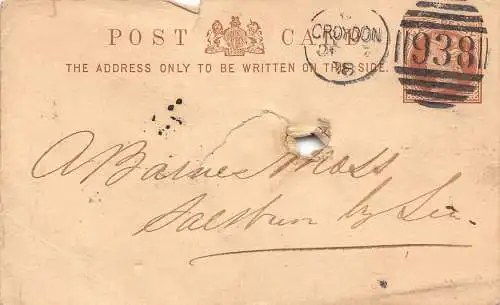 POST CARD
THE ADDRESS ONLY TO BE WRITTEN ON THIS SIDE.
CROYDON
938
A Barnes Moss
Salsburn by Sea.